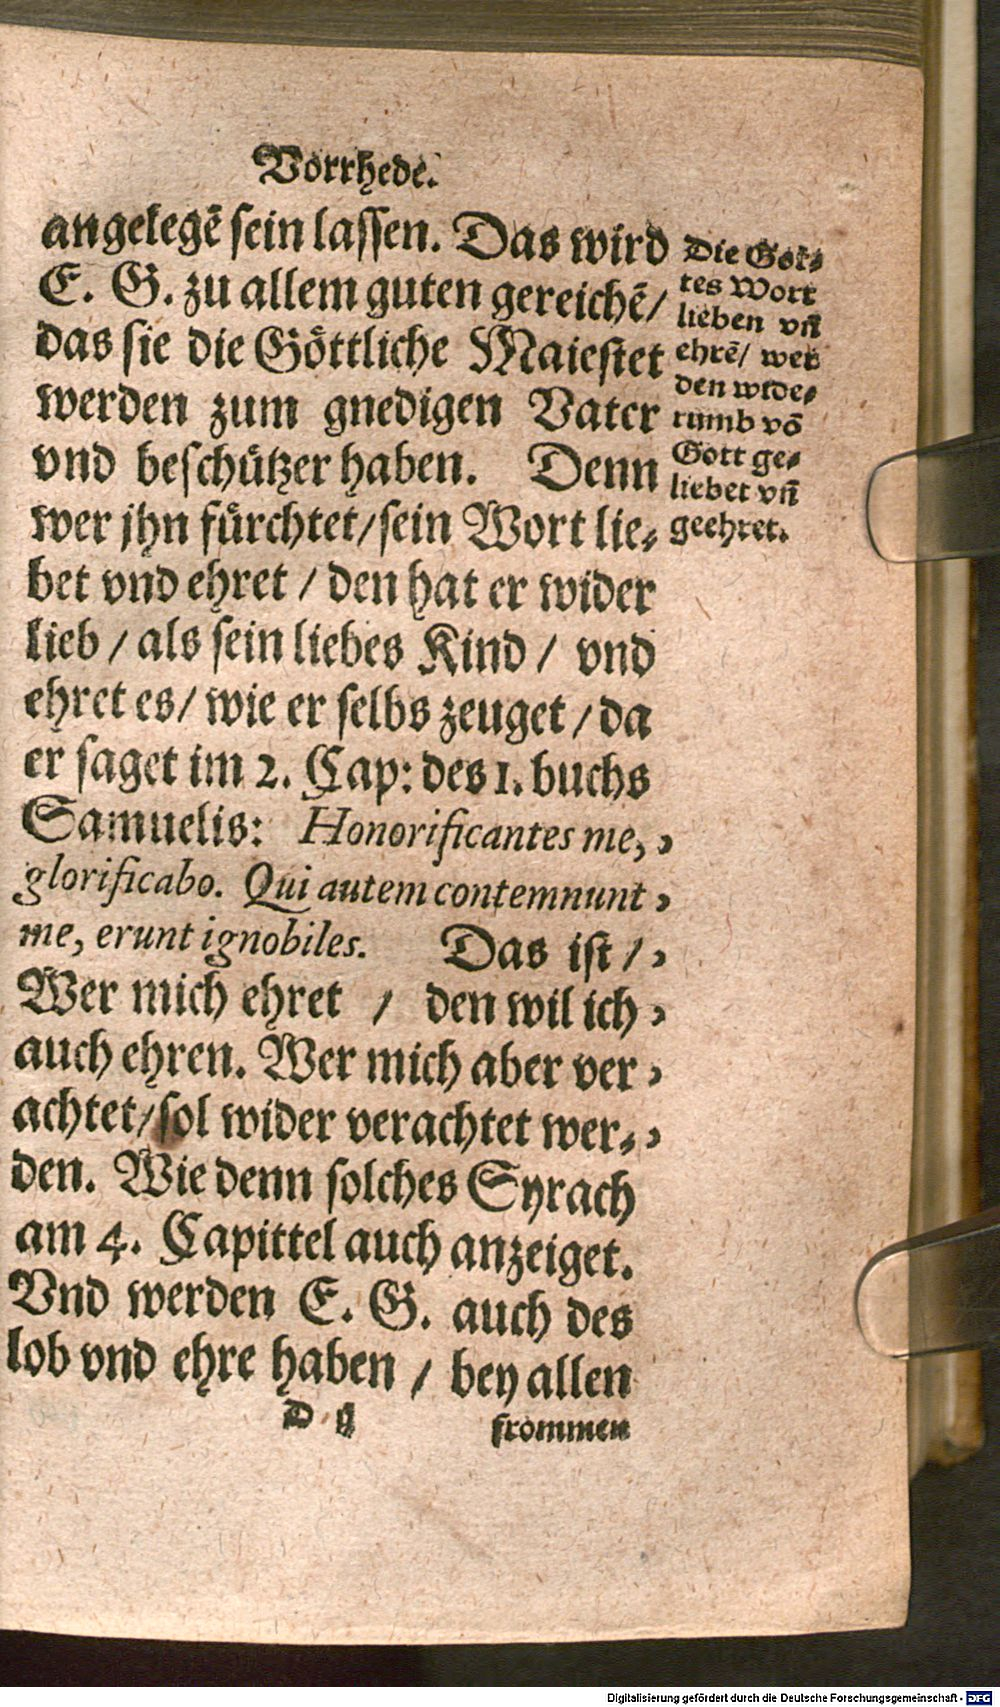 Vorrhede.
angelegẽ sein lassen. Das wird
E. G. zu allem guten gereichẽ/
das sie die Göttliche Maiestet
werden zum gnedigen Vater
vnd beschützer haben. Denn
wer jhn fürchtet/sein Wort lie⸗
bet vnd ehret / den hat er wider
lieb / als sein liebes Kind / vnd
ehret es/ wie er selbs zeuget / da
er saget im 2. Cap: des 1. buchs
Samuelis: Honorificantes me, „
glorificabo. Qui autem contemnunt „
me, erunt ignobiles. Das ist / „
Wer mich ehret / den wil ich „
auch ehren. Wer mich aber ver „
achtet/sol wider verachtet wer⸗ „
den. Wie denn solches Syrach
am 4. Capittel auch anzeiget.
Vnd werden E. G. auch des
lob vnd ehre haben / bey allen
D ij frommen
Die Got⸗
tes Wort
lieben vñ
ehrẽ/ wer
den wide⸗
rumb võ
Gott ge⸗
liebet vñ
geehret.
Digitalisierung gefördert durch die Deutsche Forschungsgemeinschaft - DFG